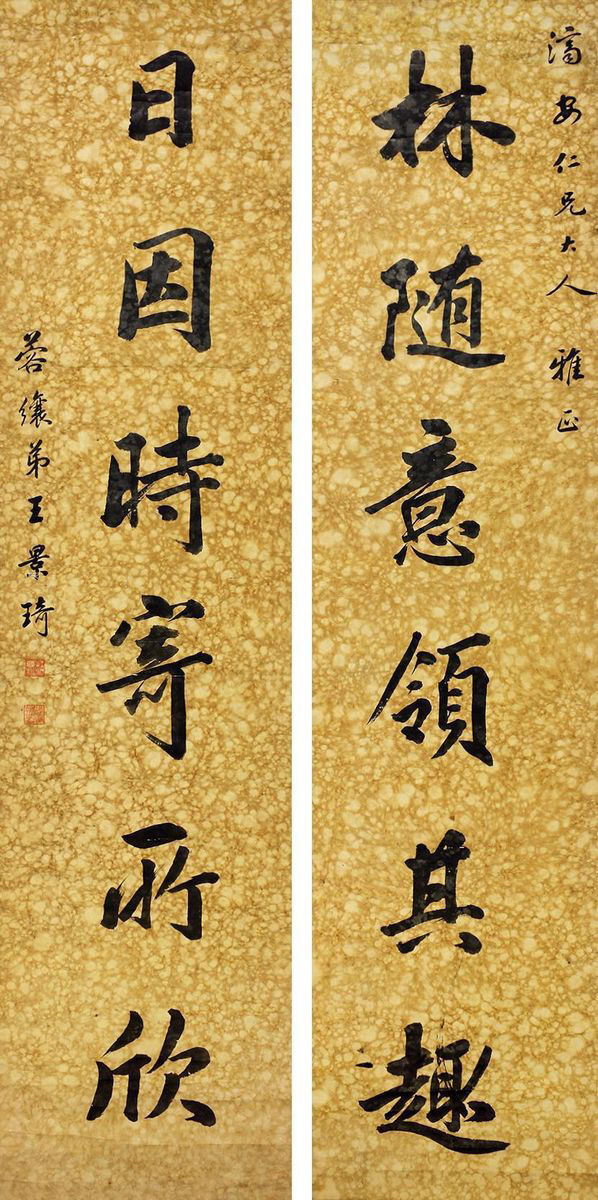 濟安仁兄大人 雅正
林隨意領其趣
日因時寄所欣
蓉纕弟王景琦